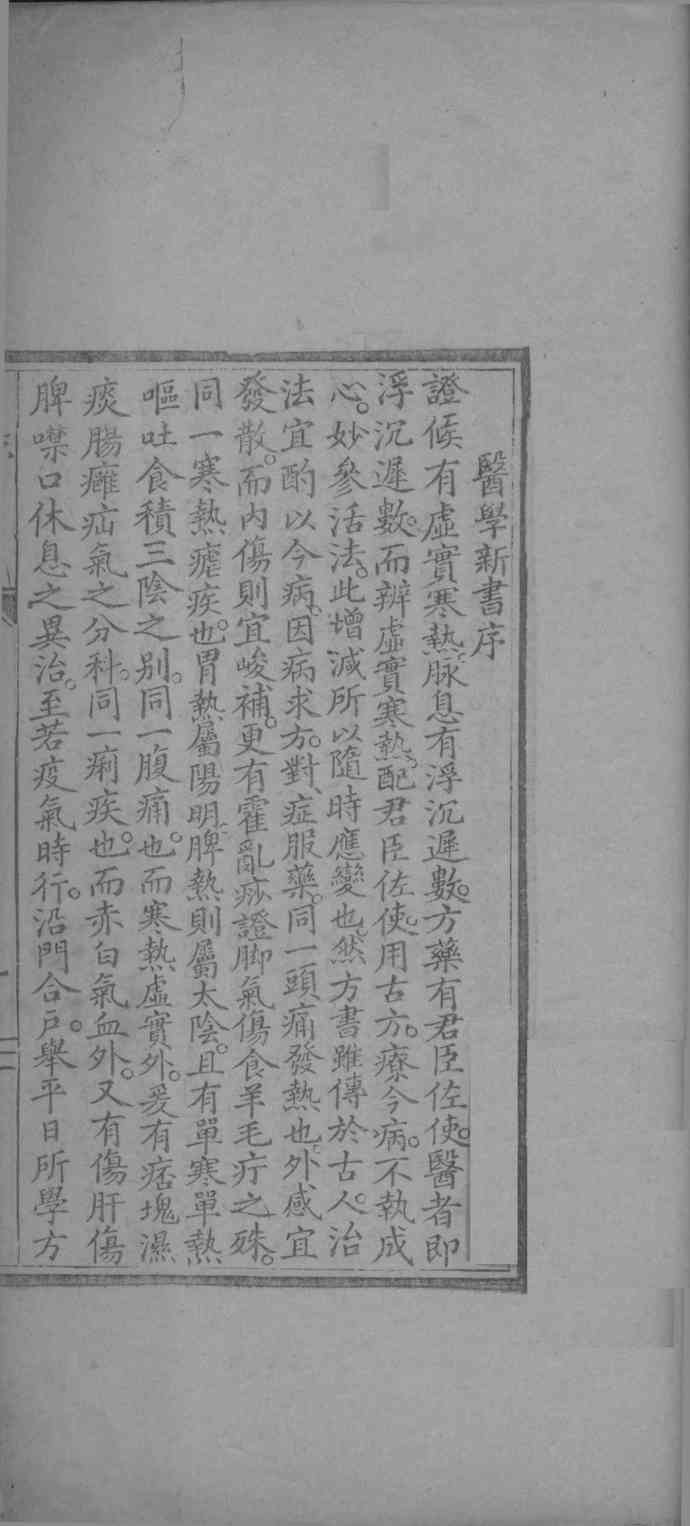 醫學新書序
證候有虛實寒熱。脉息有浮沉遲數。方藥有君臣佐使。醫者即
浮沉遲數。而辨虛實寒熱。配君臣佐使。用古方。療今病。不執成
心。妙參活法。此增減所以隨時應變也。然方書雖傳於古人。治
法宜酌以今病。因病求方。對症服藥。同一頭痛發熱也。外感宜
發散。而內傷則宜峻補。更有霍亂痧證脚氣傷食羊毛疔之殊。
同一寒熱瘧疾也。胃熱屬陽明。脾熱則屬太陰。且有單寒單熱
嘔吐食積三陰之别。同一腹痛也。而寒熱虛實外。爰有痞塊濕
痰腸癰疝氣之分科。同一痢疾也。而赤白氣血外。又有傷肝傷
脾噤口休息之異治。至若疫氣時行。沿門合戶。舉平日所學方